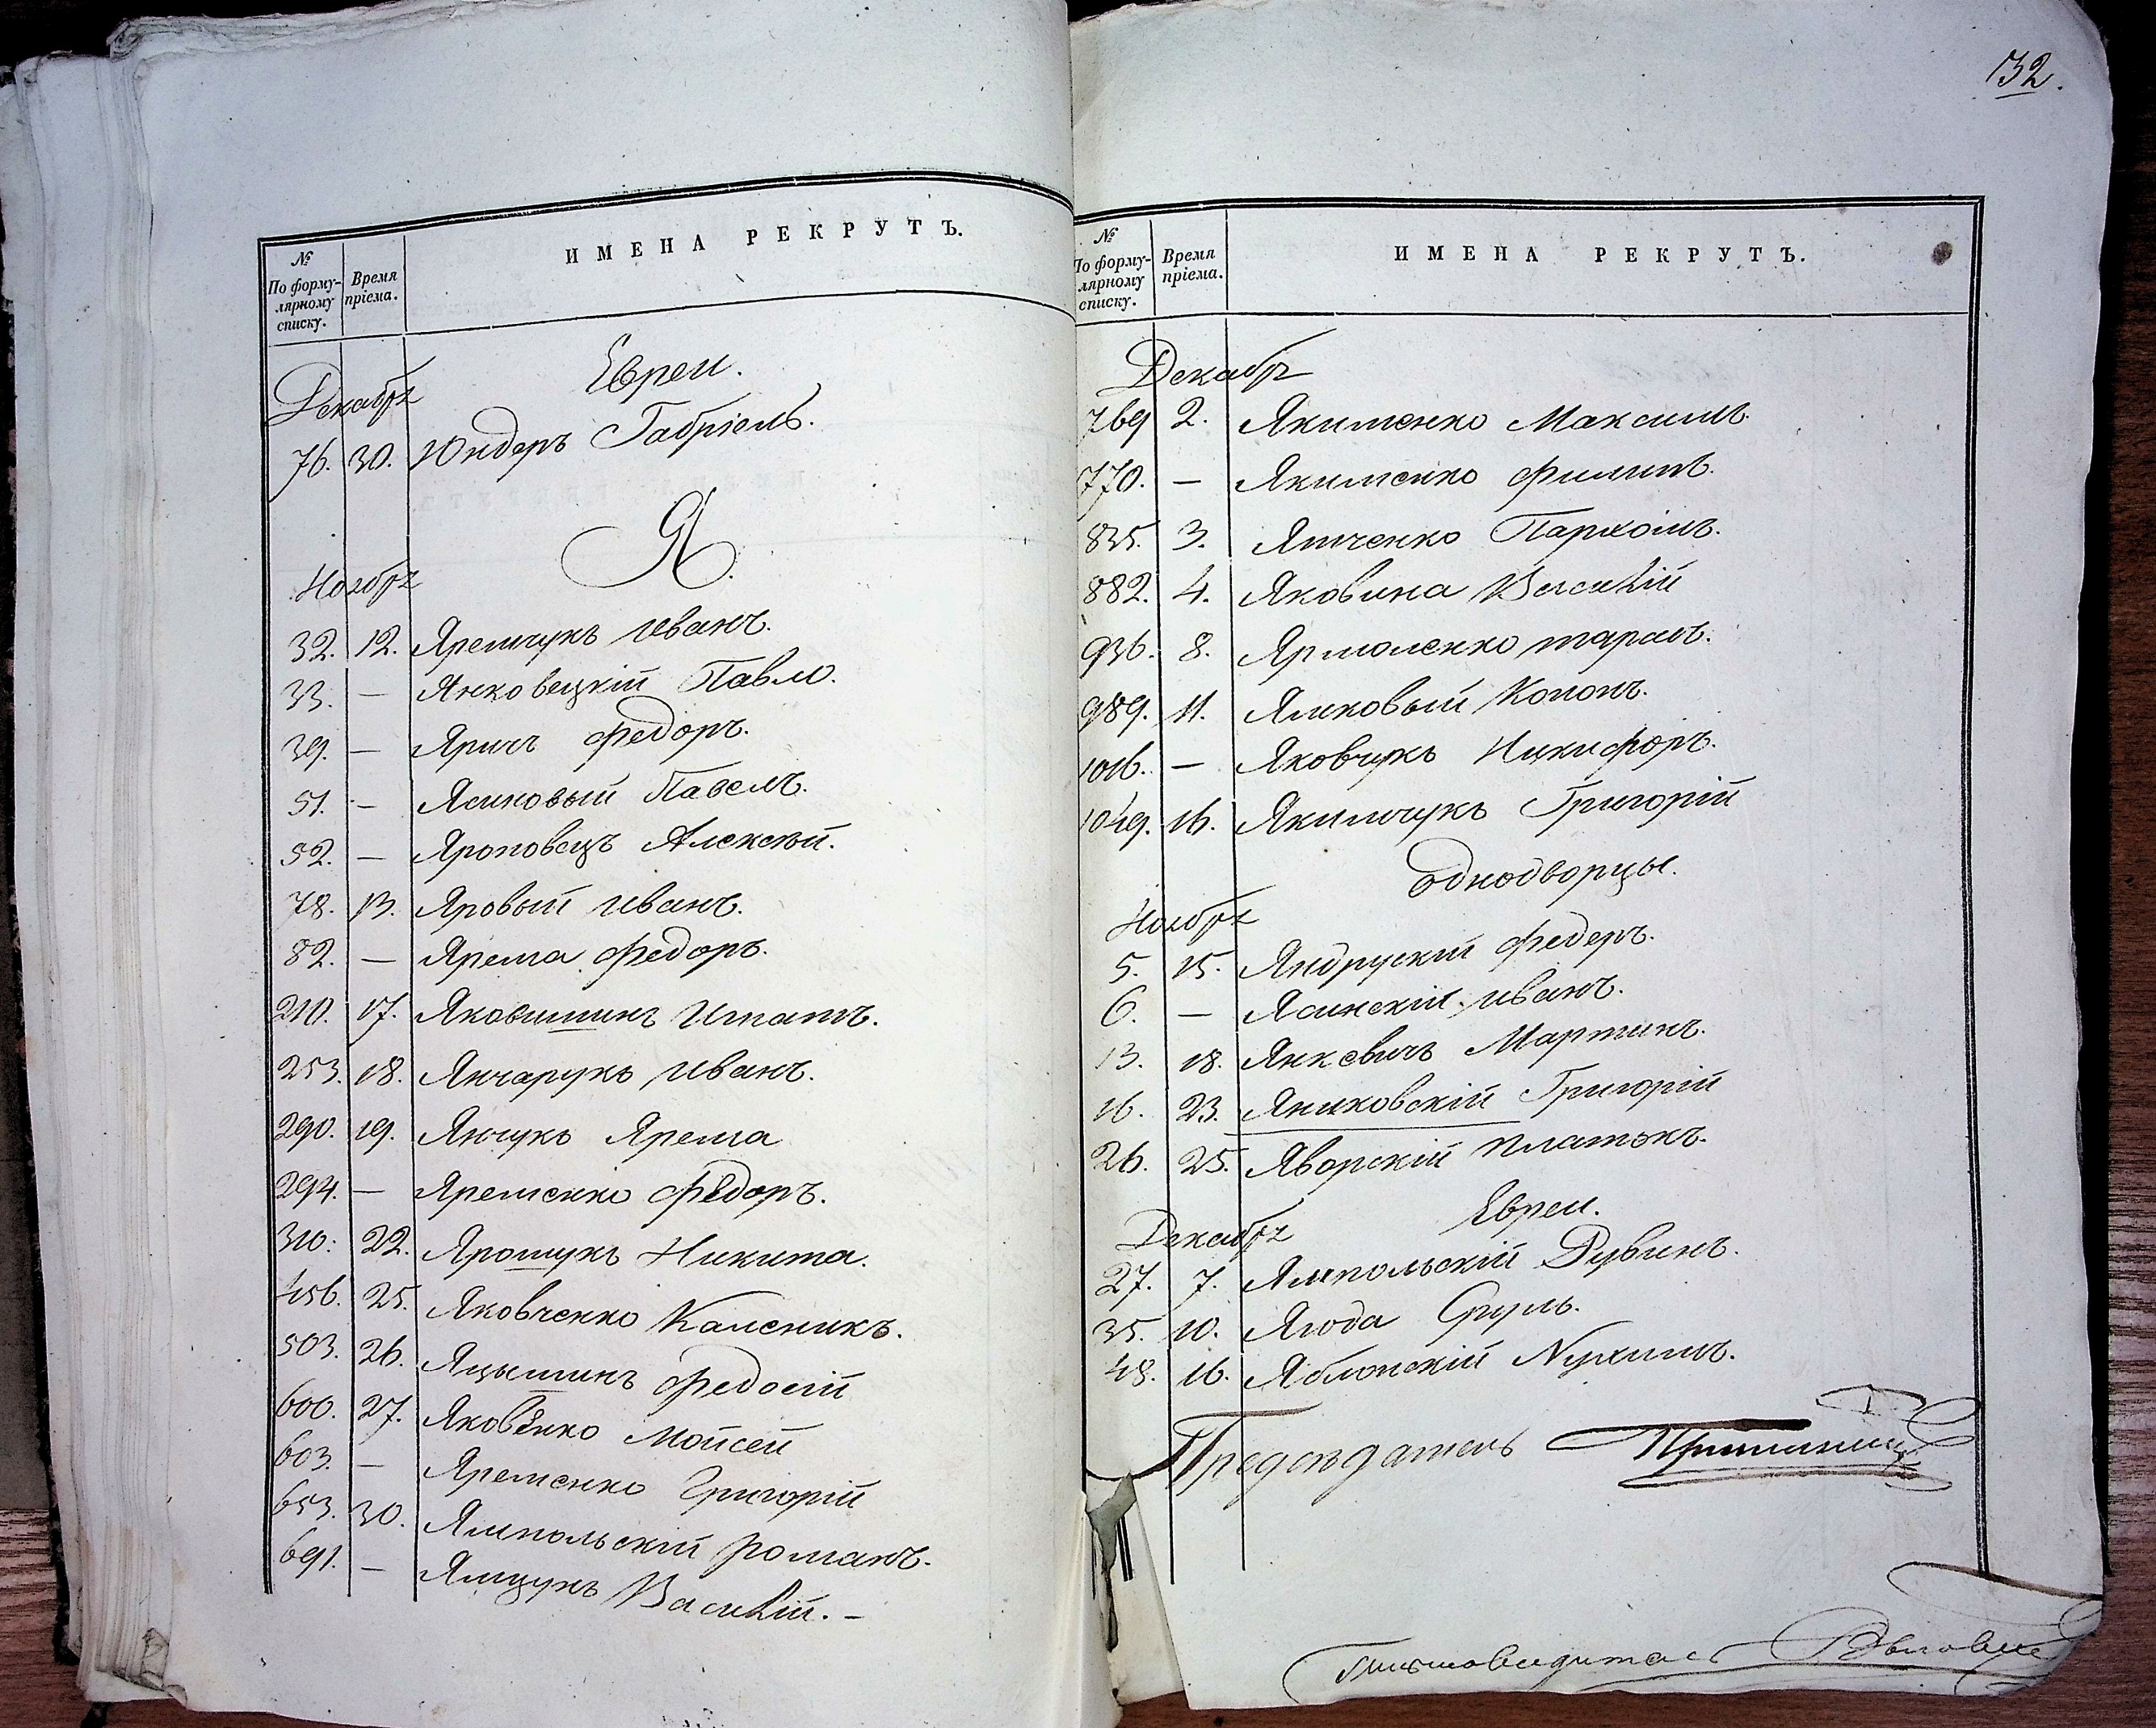 132.
№ По формулярному списку. Время пріема. ИМЕНА РЕКРУТЪ.
Евреи.
Декабря
76. 30. Юндеръ Габріель.
Я.
Ноября
32. 12. Яремчукъ Иванъ.
33. — Янковецкій Павло.
39. — Яричъ Федоръ.
51. — Ясиковый Павелъ.
52. — Яроповецъ Алексѣй.
78. 13. Яровый Иванъ.
82. — Ярема Федоръ.
210. 17. Яковишинъ Игнатъ.
253. 18. Янчарукъ Иванъ.
290. 19. Янчукъ Ярема
294. — Яременко Федоръ.
310. 22. Ярошукъ Никита.
456. 25. Яковченко Каленикъ.
503. 26. Яцышинъ Федосій
600. 27. Яковенко Мойсей
603. — Яременко Григорій
653. 30. Ямпольскій Романъ.
691. — Ямщукъ Василій. —
№ По формулярному списку. Время пріема. ИМЕНА РЕКРУТЪ.
Декабря
769 2. Якименко Максимъ.
770. — Якименко Филипъ.
835. 3. Ятченко Пархомъ.
882. 4. Яковина Василій
936. 8. Ярмоленко Тарасъ.
989. 11. Ямковый Кононъ.
1016. — Яковчукъ Никифоръ.
1049. 16. Якимчукъ Григорій
Однодворцы.
Ноября
5. 15. Яндрускій Федоръ.
6. — Ясинскій Иванъ.
13. 18. Янкевичъ Мартинъ.
16. 23. Яниковскій Григорій
26. 25. Яворскій Платонъ.
Евреи.
Декабря
27. 7. Ямпольскій Дувинъ.
35. 10. Ягода Сруль.
48. 16. Яблонскій Нухимъ.
Предсѣдатель
Письмоводитель